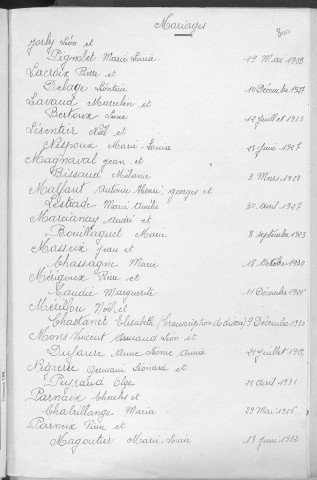 Mariages
300
Jorly Léon et
Pignolet Marie Louise 19 Mai 1928
Lacroix Pierre et
Delage Léontine 10 Décembre 1927
Lavaud Marcelin et
Bertoux Lucie 12 Juillet 1923
Lésentier Noël et
Nespoux Marie-Louise 25 Juin 1927
Magnaval Jean et
Bissaud Mélanie 3 Mars 1923
Malfaut Antoine Henri Georges et
Lestrade Marie Amélie 30 Avril 1927
Marcianay André et
Bouillaguet Marie 8 Septembre 1923
Masseix Jean et
Chassagne Marie 18 Octobre 1930
Mérigoux Pierre et
Caudie Marguerite 11 Décembre 1926
Mérillou Noël et
Chastanet Elisabeth (transcription de divorce) 9 Décembre 1930
Mons Vincent Armand Léon et
Dufaure Anne Léonie Aimée
Nigrerie Germain Léonard et
Peyraud Elga 25 Avril 1931
Parnaix Charles et
Chabrillange Maria 29 Mai 1926
Parneix Pierre et
Magoutier Marie-Louise